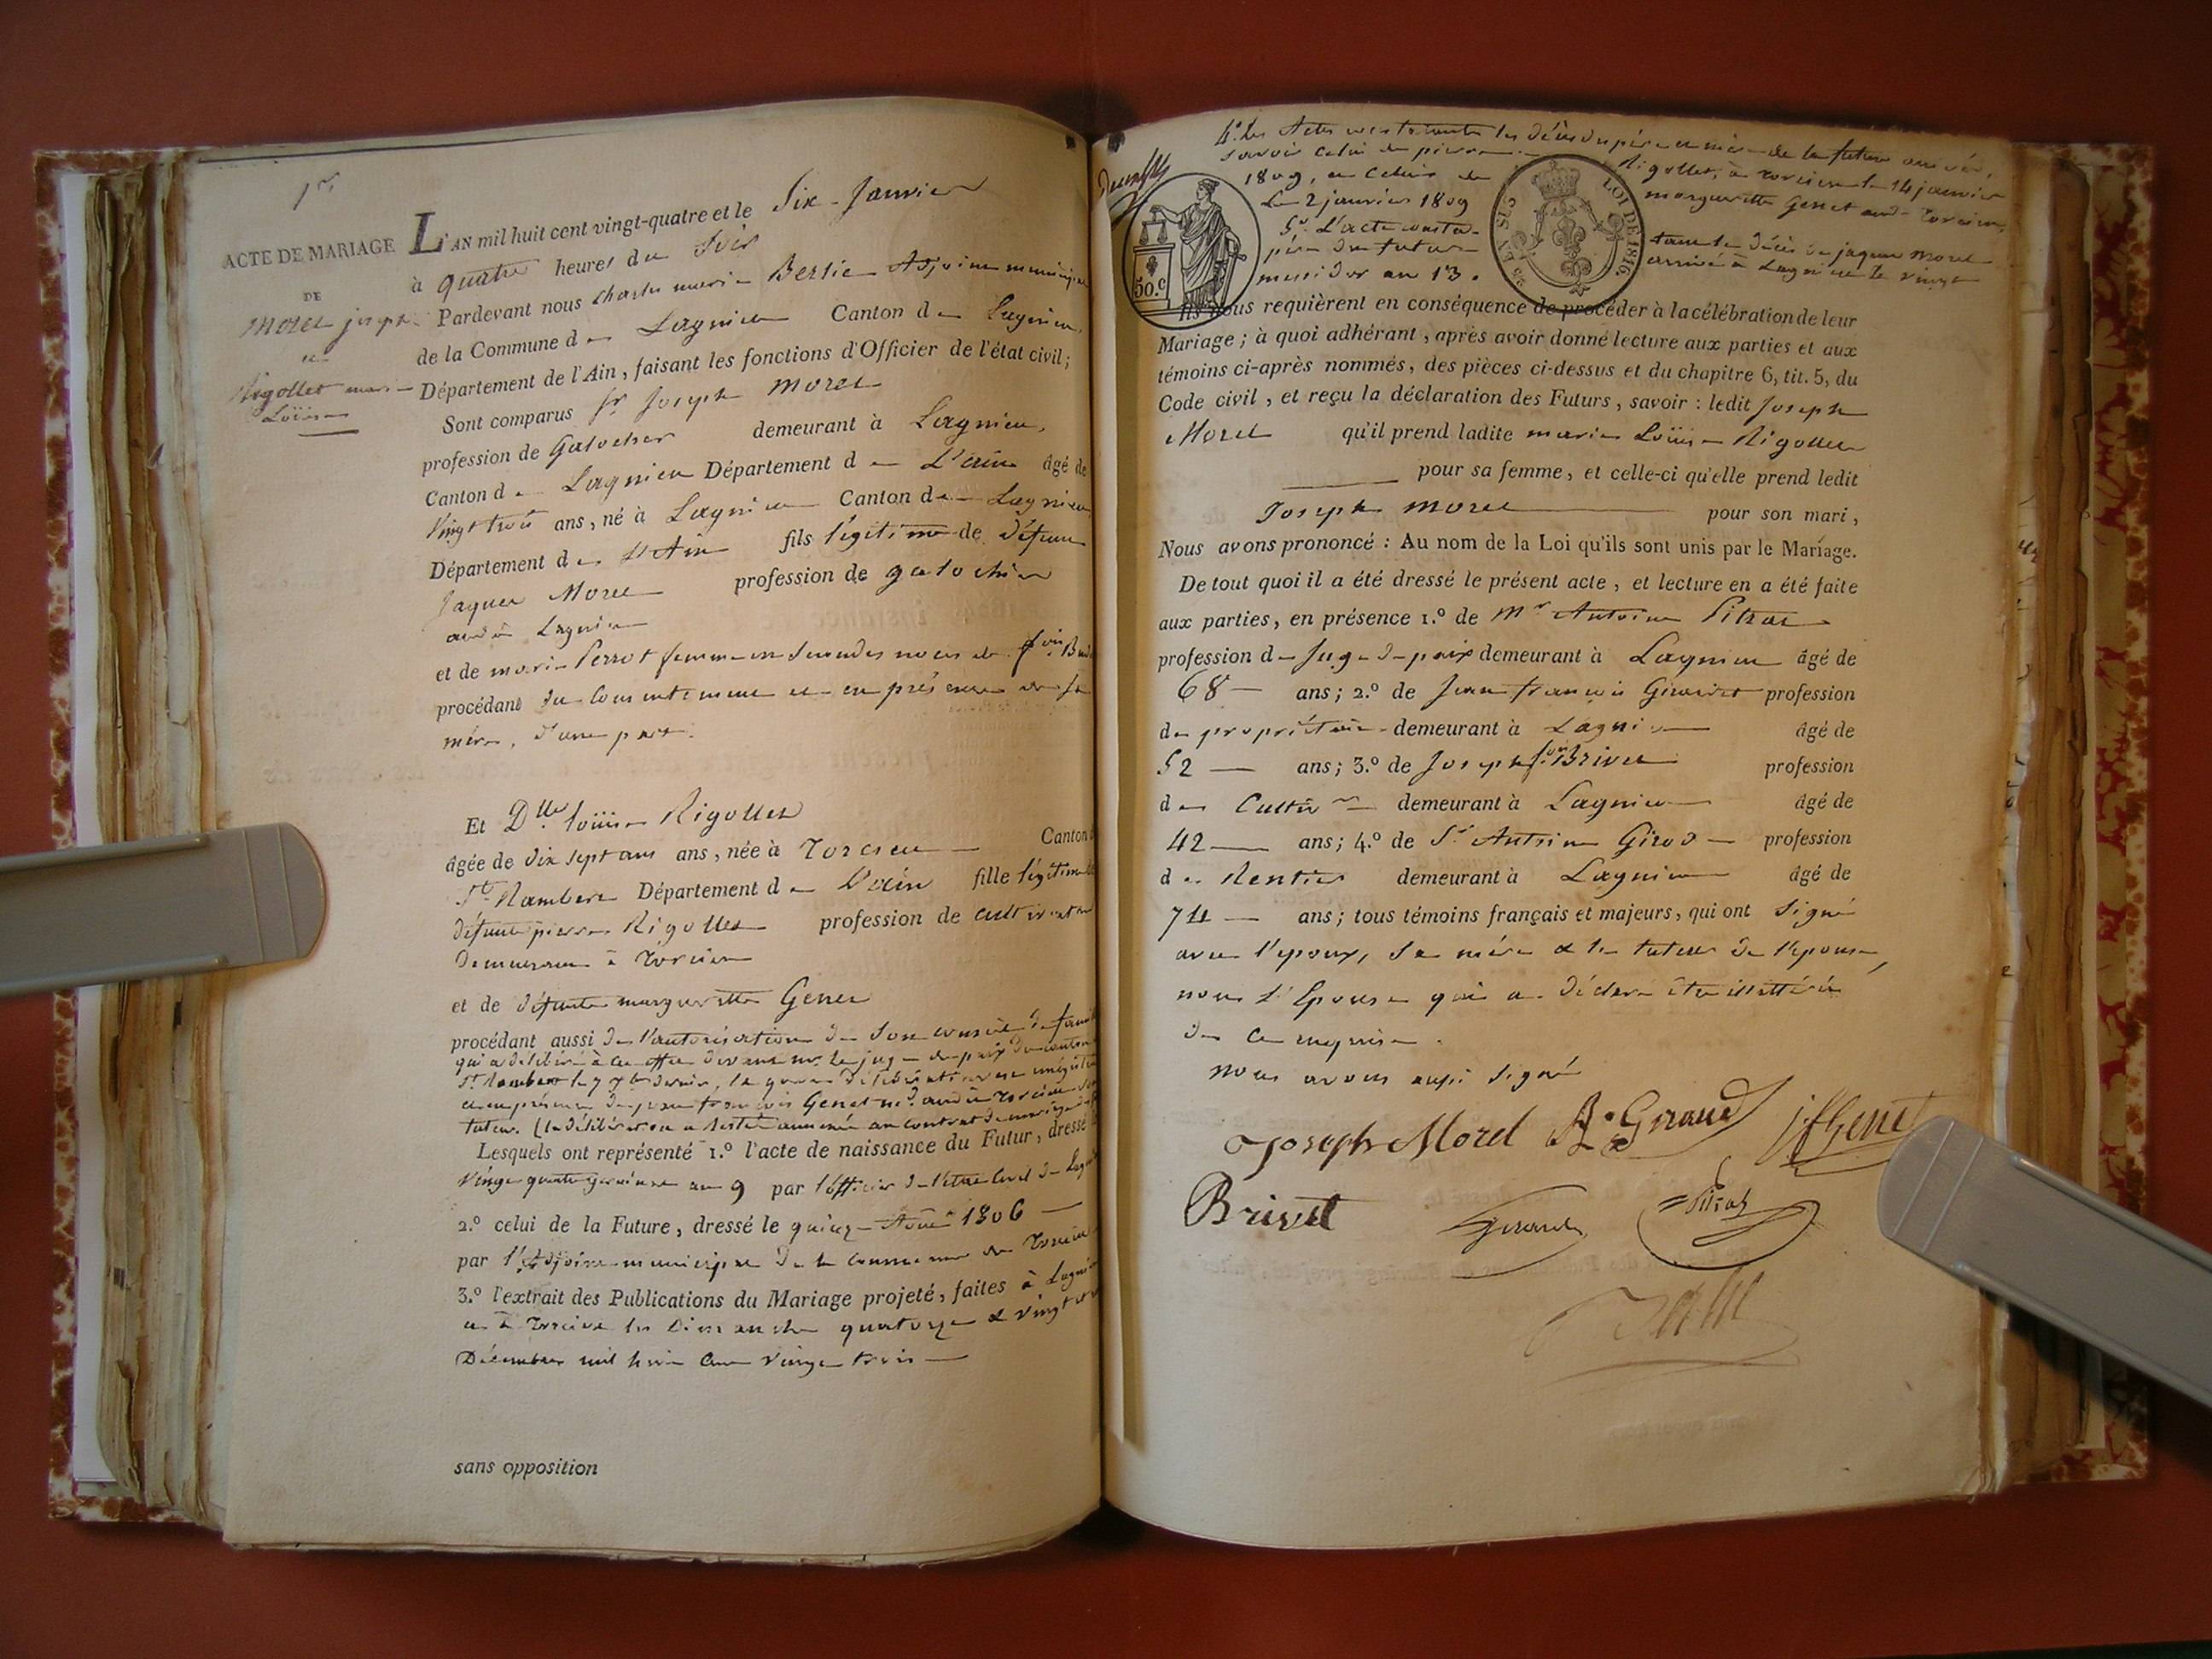 1er
ACTE DE MARIAGE
DE
Morel joseph
et
Rigollet marie
Loüise
L'AN mil huit cent vingt-quatre et le Six Janvier
à quatre heures du Soir
Pardevant nous Charles marie Adjoint municipal
de la Commune de Lagnieu Canton de Lagnieu
Département de l'Ain, faisant les fonctions d'Officier de l'état civil;
Sont comparus Sr Joseph Morel
profession de Galocher demeurant à Lagnieu,
Canton de Lagnieu Département de L'ain âgé de
Vingt trois ans, né à Lagnieu Canton de Lagnieu
Département de L'Ain fils légitime de défunt
Jaques Morel profession de galochier
audit Lagnieu
et de marie Perrot femme en secondes noces de
procédant du consentement et en présence de sa
mère, d'une part.
Et Dlle loüise Rigollet
âgée de dix sept ans ans, née à Torcieu Canton
St Rambert Département de L'ain fille légitime
défunt pierre Rigollet profession de cultivateur
demeurant à Torcieu
et de défunte margueritte Genet
procédant aussi de l'autorisation de son conseil de famille
qui a délibéré à cet effet devant mr. le juge de paix du canton
St Rambert le 7 7bre dernier,
tuteur. (la délibération a resté annexée au contrat de mariage
Lesquels ont représenté 1.º l'acte de naissance du Futur, dressé
Vingt quatre germinal an 9 par l'officier de l'état Civil de
2.º celui de la Future, dressé le quinze Août 1806
par l'Adjoint municipal de la commune de Torcieu
3.º l'extrait des Publications du Mariage projeté, faites à Lagnieu
et à Torcieu les Dimanche quatorze & vingt un
Décembre mil huit Cent vingt trois
sans opposition
4.º Les Actes constatant les décès du père et mère de la future
savoir celui de pierre Rigollet, à Torcieu le 14 janvier
1809, et celui de margueritte Genet audit Torcieu,
Le 2 janvier 1809
5.º L'acte constatant le décès de jaques Morel
père du futur arrivé à Lagnieu le vingt
messidor an 13.
50.c
LOI DE 1816
Ils nous requièrent en conséquence de procéder à la célébration de leur
Mariage; à quoi adhérant, après avoir donné lecture aux parties et aux
témoins ci-après nommés, des pièces ci-dessus et du chapitre 6, tit. 5, du
Code civil, et reçu la déclaration des Futurs, savoir: ledit Joseph
Morel qu'il prend ladite marie Loüise Rigollet
pour sa femme, et celle-ci qu'elle prend ledit
Joseph Morel pour son mari,
Nous avons prononcé: Au nom de la Loi qu'ils sont unis par le Mariage.
De tout quoi il a été dressé le présent acte, et lecture en a été faite
aux parties, en présence 1.º de Mr Antoine
profession de Juge de paix demeurant à Lagnieu âgé de
68 ans; 2.º de Jean françois profession
de propriétaire demeurant à Lagnieu âgé de
52 ans; 3.º de Joseph Brivet profession
de Cultivr demeurant à Lagnieu âgé de
42 ans; 4.º de Sr Antoine Girod profession
de Rentier demeurant à Lagnieu âgé de
74 ans; tous témoins français et majeurs, qui ont Signé
avec l'époux, Sa mére & le tuteur de l'épouse,
non L'Epouse qui a déclaré être illettérée
de ce enquise.
nous avons aussi Signé
Joseph Morel jfGenet
Brivet